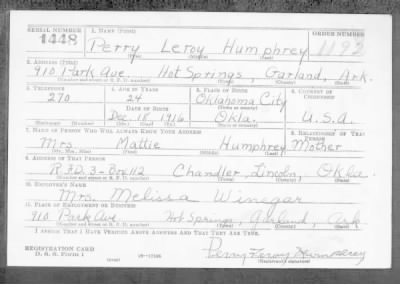 SERIAL NUMBER 1. NAME (Print) ORDER NUMBER
1448 Perry Leroy Humphrey 1192
(First) (Middle) (Last)
2. ADDRESS (Print)
910 Park Ave. Hot Springs, Garland, Ark.
(Number and street or R. F. D. number) (Town) (County) (State)
3. TELEPHONE 4. AGE IN YEARS 5. PLACE OF BIRTH 6. COUNTRY OF CITIZENSHIP
270 24 Oklahoma City
DATE OF BIRTH (Town or county)
Dec. 18, 1916 Okla. U.S.A.
(Exchange) (Number) (Mo.) (Day) (Yr.) (State or country)
7. NAME OF PERSON WHO WILL ALWAYS KNOW YOUR ADDRESS 8. RELATIONSHIP OF THAT PERSON
Mrs Mattie Humphrey Mother
(Mr., Mrs., Miss) (First) (Middle) (Last)
9. ADDRESS OF THAT PERSON
R.F.D. 3-Box 112 Chandler, Lincoln, Okla.
(Number and street or R. F. D. number) (Town) (County) (State)
10. EMPLOYER'S NAME
Mrs. Melissa Winegar
11. PLACE OF EMPLOYMENT OR BUSINESS
910 Park Ave Hot Springs, Garland, Ark
(Number and street or R. F. D. number) (Town) (County) (State)
I AFFIRM THAT I HAVE VERIFIED ABOVE ANSWERS AND THAT THEY ARE TRUE.
REGISTRATION CARD Perry Leroy Humphrey
D. S. S. Form 1 (Registrant's signature)